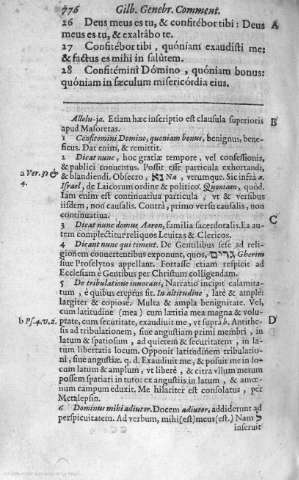 776 Gilb. Genebr. Comment.
26 Deus meus es tu, & confitébor tibi : Deus B
meus es tu, & exaltábo te.
27 Confitébor tibi, quóniam exaudisti me:
& factus es mihi in salútem.
28 Confitémini Dómino, quóniam bonus:
quóniam in sæculum misericórdia eius.
Allelu-ja. Etiam hæc inscriptio est clausula superioris
apud Masoretas.
1 Confitemini Domino, quoniam bonus, benignus, bene-
ficus. Dat enim, & remittit.
2 Dicat nunc, hoc gratiæ tempore, vel confessionis,
& publici conuentus. Posset esse particula exhortandi,
a Ver. 
& blandiendi. Obsecro, Na, verumque. Sic infra
4.
Israel, de Laicorum ordine & politico. Quoniam, quòd.
Iam enim est continuatiua particula, vt & versibus
iisdem, non causalis. Contrà, primo versu causalis, non
continuatiua.
C
3 Dicat nunc domus Aaron, familia sacerdotalis. Ea au-
tem complectitur religuos Leuitas & Clericos.
4 Dicant nunc qui timent. De Gentibus se ad reli-
gionem conuertentibus exponunt, quos, גרים Gherim
siue Proselytos appellant. Fortasse etiam respicit ad
Ecclesiam è Gentibus per Christum colligendam.
5 De tribulatione inuocaui, Narratio incipit calamita-
tum, è quibus ereptus sit. In altitudine, latè & ampliter
largiter & copiosè: Multa & ampla benignitate. Vel,
cum latitudine (mea) cum lætitia mea magna & volup-
b Ps. 4. v. 2. tate, cum securitate, exaudiuit me, vt suprà b. Antithe- D
sis ad tribulationem, siue angustiam primi membri, in
latum & spatiosum, ad quietem & securitatem, in la-
tum libertatis locum. Opponit latitudinem tribulatio-
ni, siue angustiæ. q. d. Exaudiuit me, & posuit me in lo-
cum latum & amplum, vt liberè, & citra vllum metum
possem spatiari in tuto: ex angustiis in latum, & amœ-
num campum eduxit. Me hilariter est consolatus, per
Metalepsin.
6 Dominus mihi adiutor. Docem adiutor, addiderunt ad
perspicuitatem. Ad verbum, mihi (est) meus (est.) Nam ל
inseruit